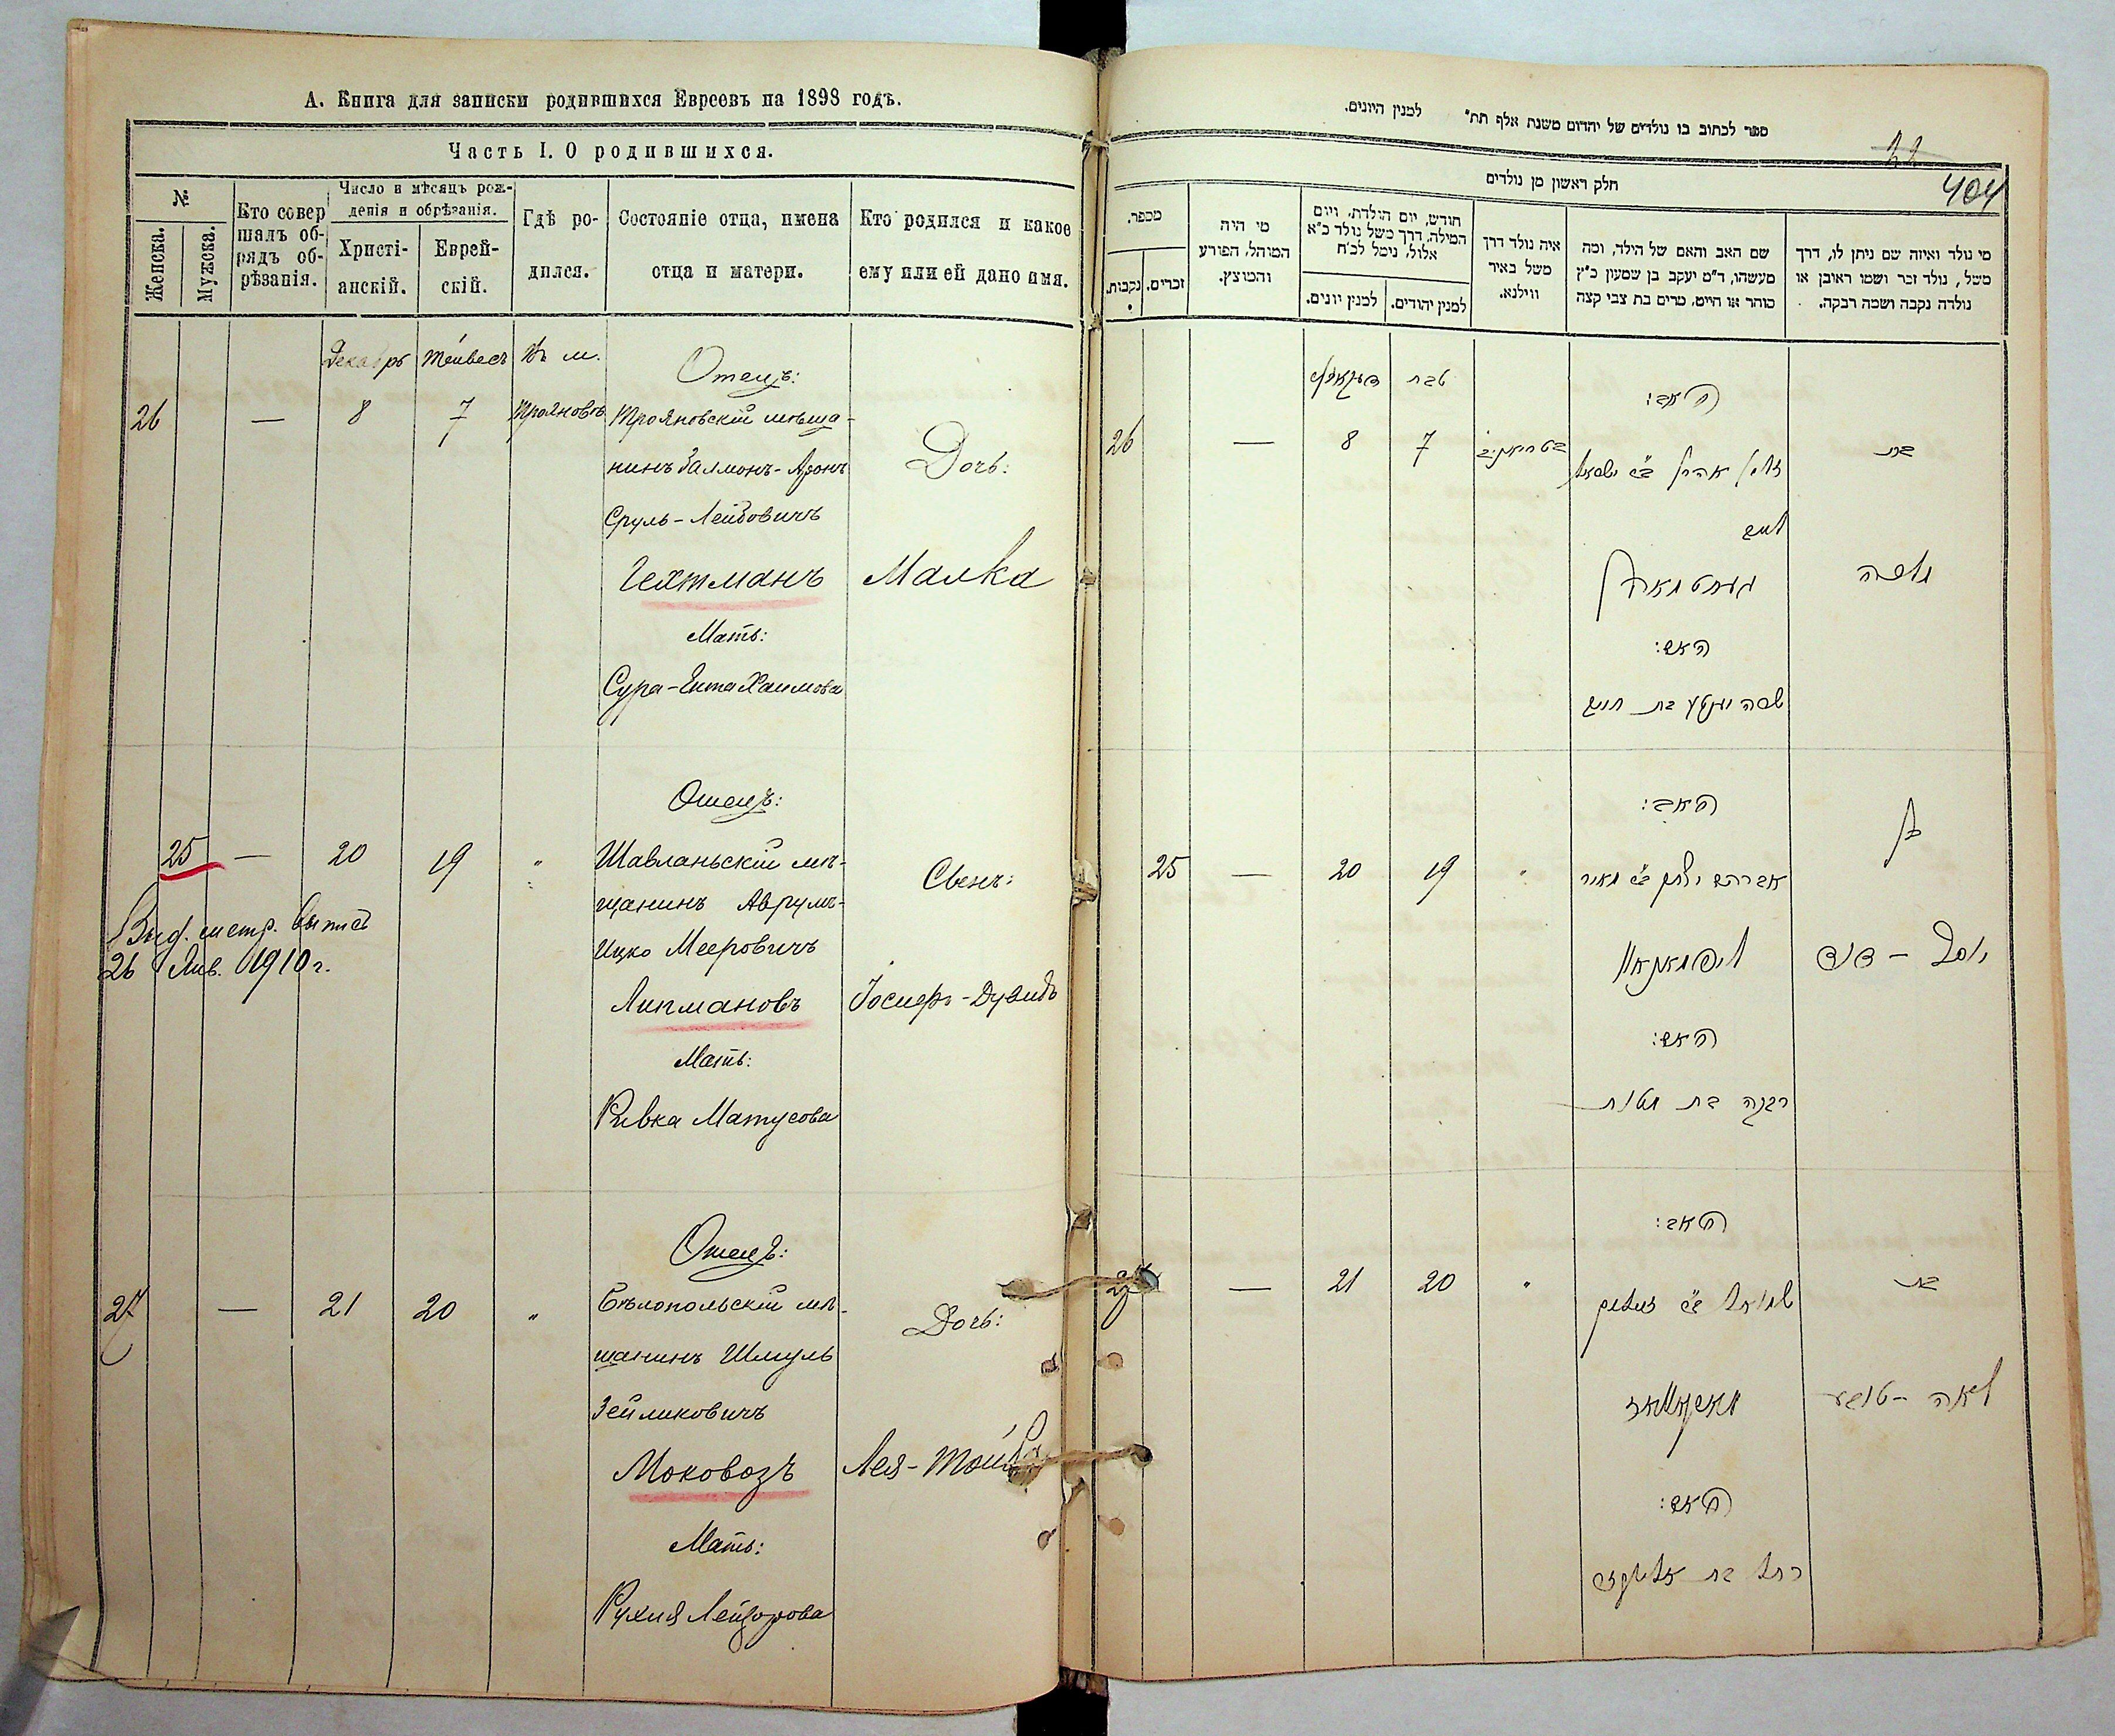 А. Книга для записки родившихся Евреевъ на 1898 годъ.
Часть I. О родившихся.
№
Женска.
Мужска.
Кто совер
шалъ об-
рядъ об-
рѣзанія.
Число и мѣсяцъ рож-
денія и обрѣзанія.
Христі-
анскій.
Еврей-
скій.
Гдѣ ро-
дился.
Состояніе отца, имена
отца и матери.
Кто родился и какое
ему или ей дано имя.
Декабрь Тейвесъ Въ м.
Отецъ:
26 — 8 7 Трояновѣ Трояновскій мѣща-
нинъ Залмонъ-Аронъ Дочь:
Сруль-Лейбовичъ
Гехтманъ Малка
Мать:
Сура-Ента Хаимова
Отецъ:
25 — 20 19 " Шавланьскій мѣ-
щанинъ Аврумъ- Сынъ:
Ицко Мееровичъ
Выд. метр. выпись
26 Янв. 1910 г.
Липмановъ Іосифъ-Дувидъ
Мать:
Ривка Матусова
Отецъ:
27 — 21 20 " Бѣлопольскій мѣ-
щанинъ Шмуль Дочь:
Зейликовичъ
Моковозъ Лея-Тойба
Мать:
Рухля Лейзорова
ספר לכתוב בו נולדים של יהדים משנת אלף תת״ למנין היונים.
22
404
חלק ראשון מן נולדים
מספר.
נקבות.
זכרים.
מי היה
המוהל, הפורע
והמוצץ.
חודש, יום הולדת, ויום
המילה, דרך משל נולד כ״א
אלול, נימל לכ״ח
למנין יונים.
למנין יהודים.
איה נולד דרך
משל באיר
ווילנא.
שם האב והאם של הילד, ומה
מעשהו, ד״מ יעקב בן שמעון כ״ץ
סוחר או חייט, מרים בת צבי קצה
מי נולד ואיזה שם ניתן לו, דרך
משל, נולד זכר ושמו ראובן או
נולדה נקבה ושמה רבקה.
טבת
האב:
26 — 8 7
זלמן אהרן ב״ר ישראל בת
ליב
געכטמאן מלכה
האם:
שרה יענטע בת חיים
האב:
בן
25 — 20 19 " אברהם יצחק ב״ר מאיר
ליפמאנאוו יוסף - דוד
האם:
רבקה בת מטות
האב:
27 — 21 20 " שמואל ב״ר זעליג בת
מאקאוואז לאה - טובע
האם:
רחל בת אליעזר